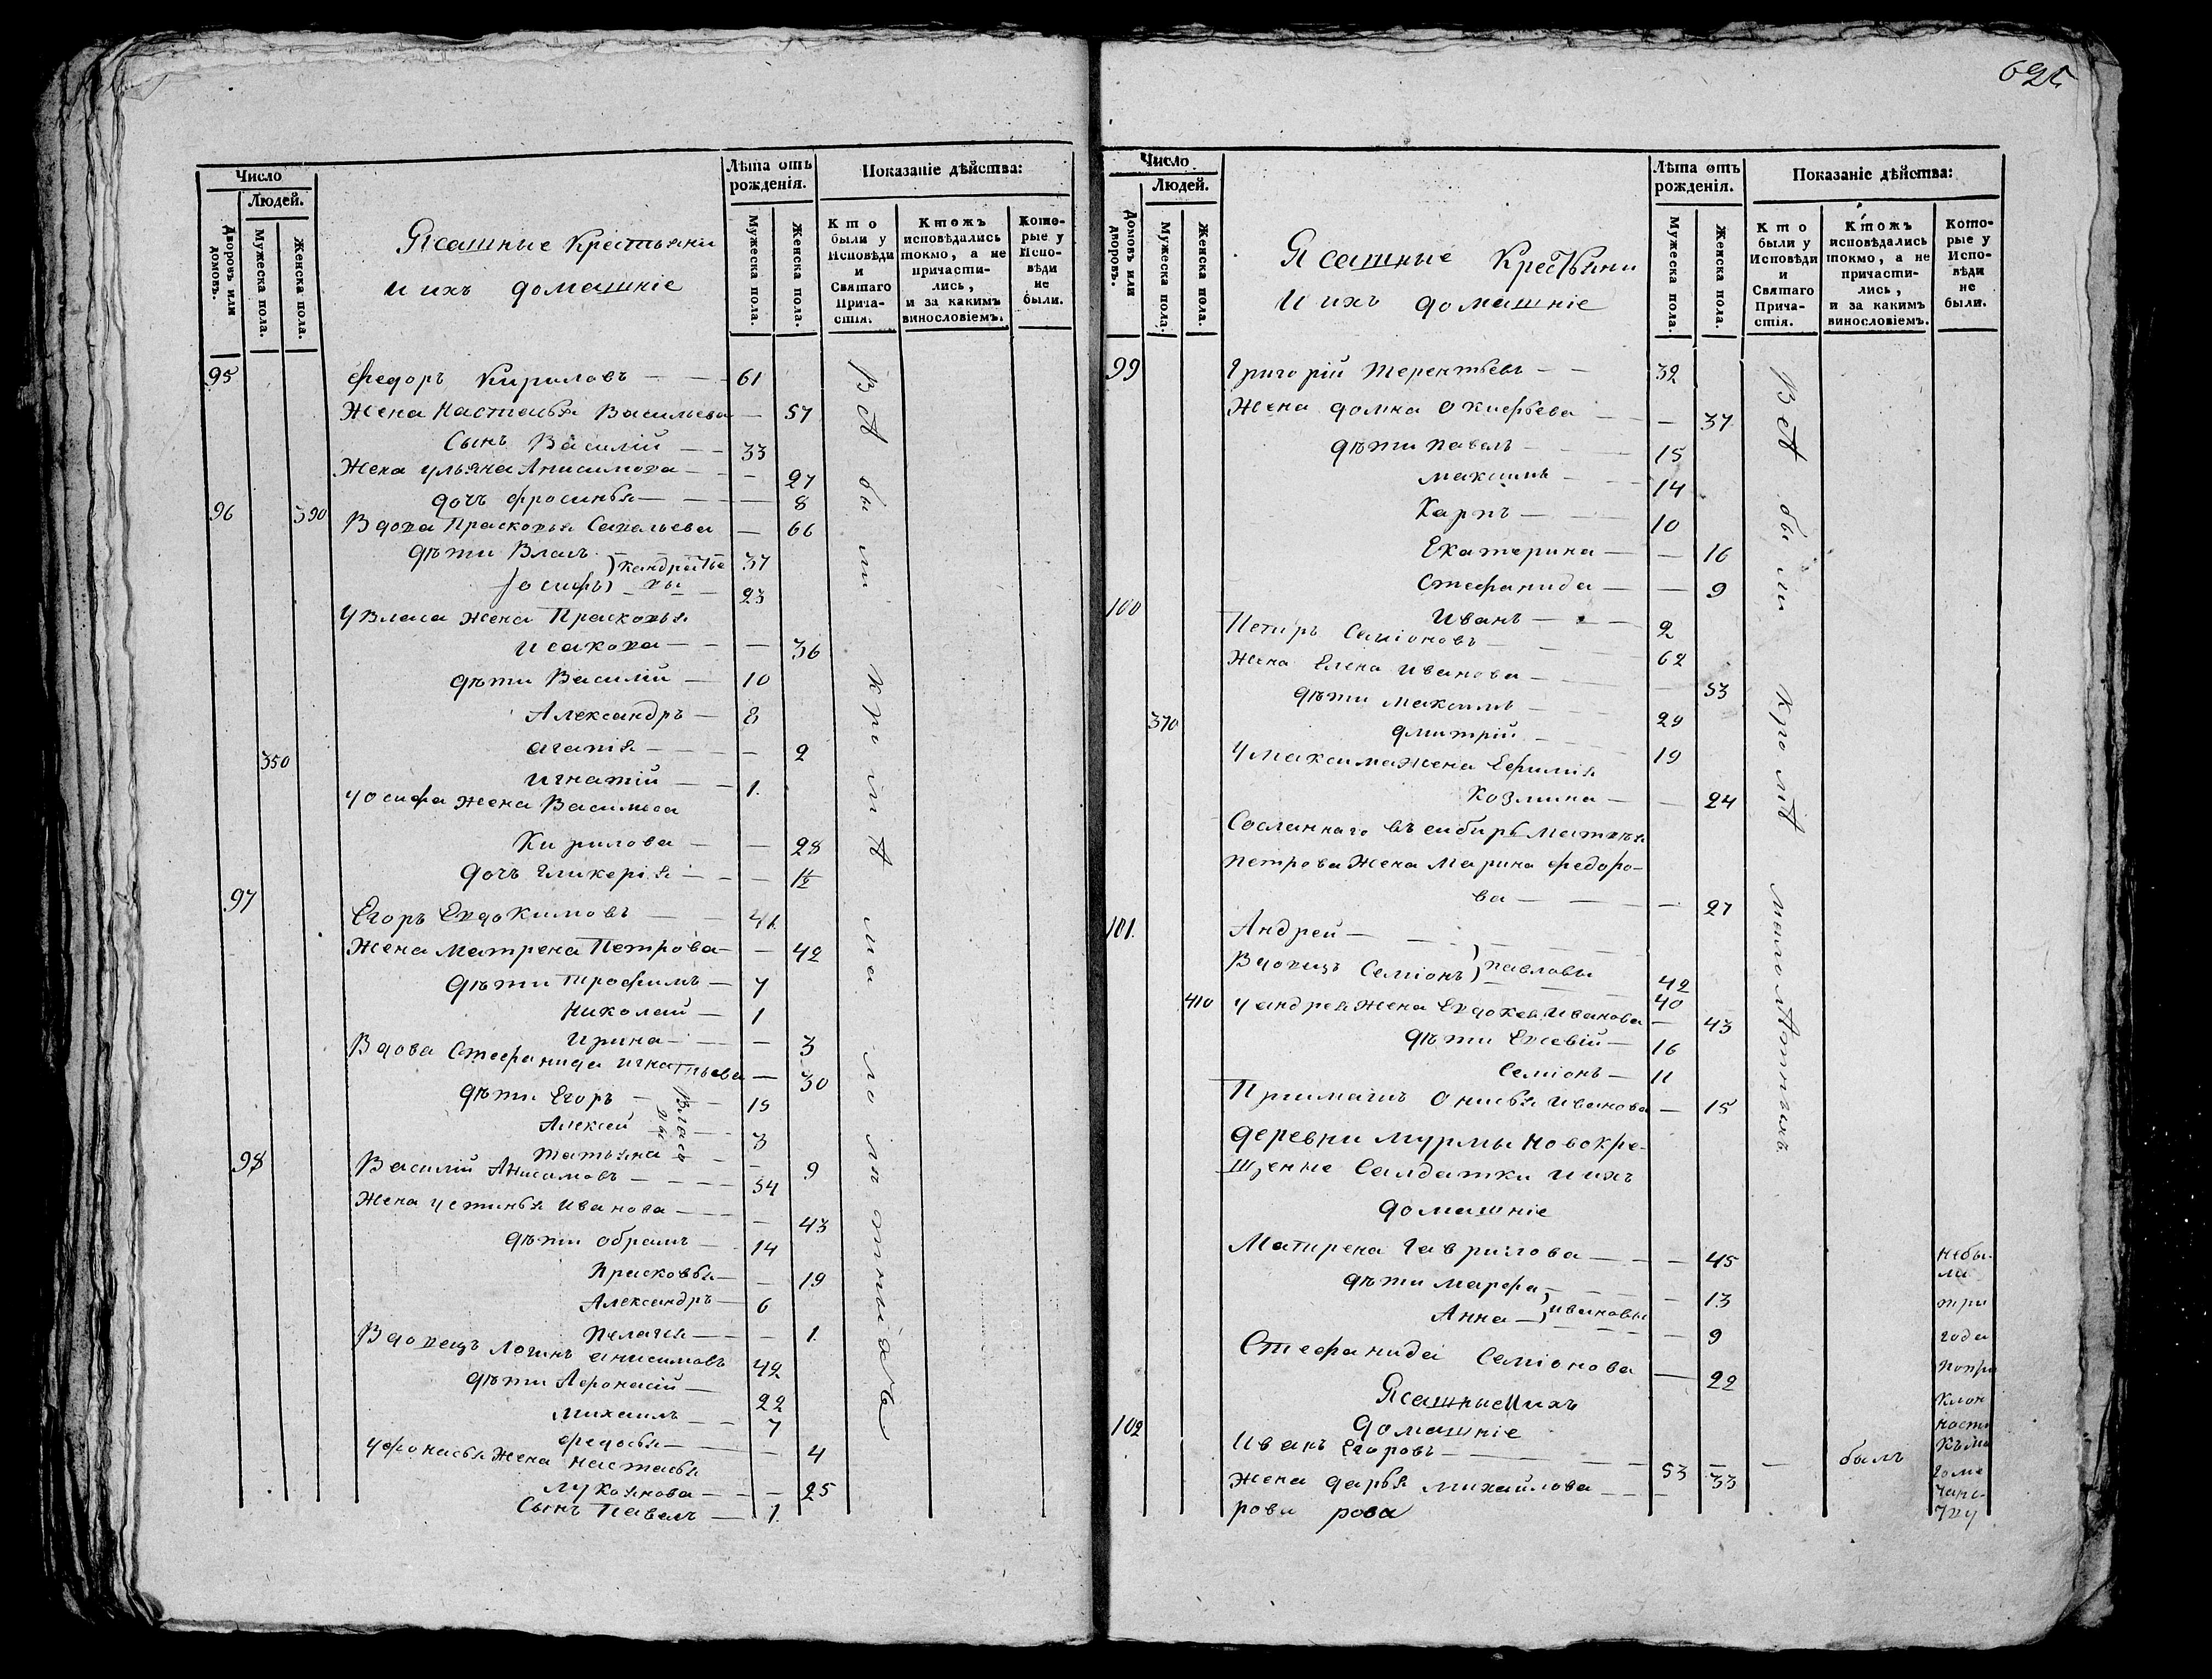 Число
Людей.
Дворовъ или домовъ.
Мужеска пола.
Женска пола.
Ясашные Крестьяни
и ихъ домашніе
Лѣта отъ рожденія.
Мужеска пола.
Женска пола.
Показаніе дѣйства:
Кто были у Исповѣди и Святаго Прича- стія.
Ктожъ исповѣдались токмо, а не причасти- лись, и за какимъ винословіемъ.
Кото- рые у Испо- вѣди не были.
95 Федоръ Кириловъ — 61
Жена Настасья Васильева — 57
Сынъ Василій — 33
Жена Ульяна Анисимова — 27
дочь Фросинья — 8
96 390 Вдова Прасковья Савельева — 66
дѣти Власъ 37
Іосифъ 23
У Власа жена Прасковья
Исакова — 36
дѣти Василій — 10
Александръ — 8
Агапія — 2
350 Игнатій — 1.
У Осифа жена Василиса
Кирилова — 28
дочь Гликерія — 1½
97 Егоръ Евдокимовъ — 41
Жена Матрена Петрова — 42
дѣти Трофимъ — 7
Николай — 1
Ирина — 3
Вдова Стефанида Игнатьева — 30
дѣти Егоръ — 15
Власовы
Алексей — 3
Татьяна — 9
98 Василій Анисимовъ — 54
Жена Устинья Иванова — 43
дѣти Обрамъ — 14
Прасковья — 19
Александръ — 6
Пелагея — 1.
Вдовецъ Логинъ Анисимовъ 42
дѣти Афонасій — 22
Михаилъ — 7
Федосья — 4
У Афонасья Жена Настасья
Лукоянова — 25
Сынъ Павелъ — 1.
Всѣ были кромѣ малолѣтныхъ
Число
Людей.
Домовъ или дворовъ.
Мужеска пола.
Женска пола.
Ясашные Крестьяни
и ихъ домашніе
Лѣта отъ рожденія.
Мужеска пола.
Женска пола.
Показаніе дѣйства:
Кто были у Исповѣди и Святаго Прича- стія.
Ктожъ исповѣдались токмо, а не причасти- лись, и за какимъ винословіемъ.
Кото- рые у Испо- вѣди не были.
99 Григорій Терентьевъ — 32
Жена Домна Окифьева — 37
дѣти Павелъ — 15
Максимъ — 14
Карпъ — 10
Екатерина — 16
Стефанида — 9
100 Иванъ — 2
Петиръ Семіоновъ — 62
Жена Елена Иванова — 53
дѣти Максимъ — 29
370 Дмитрій — 19
У Максима жена Ефимія
Козмина — 24
Сосланнаго въ Сибирь Матвѣя
Петрова Жена Марина Федоро-
ва — 27
101. Андрей — 42
Вдовецъ Семіонъ Павловы 40
410 У Андрея жена Евдокея Иванова — 43
дѣти Евсевій — 16
Семіонъ — 11
Онисья Иванова — 15
деревни Мурмы новокре-
щеные Салдатки и ихъ
домашніе
Матирена Гаврилова — 45
дѣти Марфа — 13
Анна — Ивановы 9
Стефанида Семіонова — 22
Ясашные и ихъ
домашніе
102 Иванъ Егоровъ — 53 былъ
Жена Дарья Михайлова — 33
рова рова
Всѣ были кромѣ малолѣтныхъ
небы-
ла
три
года